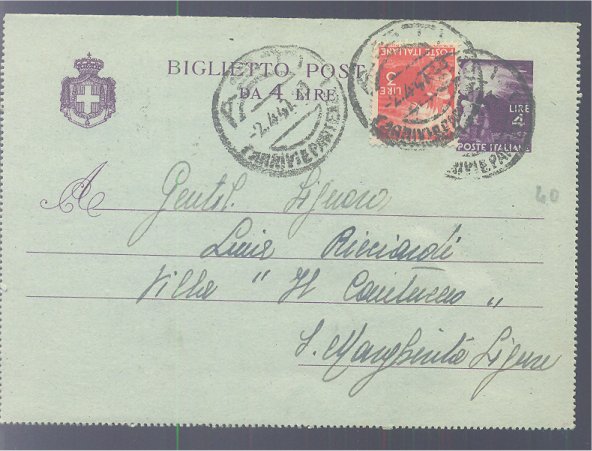 BIGLIETTO POST
DA 4 LIRE
POSTE ITALIANE
LIRE
3
LIRE
4
POSTE ITALIANE
-2.4.47
ARRIVI E PARTENZE
A Gentil. Signora
Ricciardi
Villa " Il Cantuccio "
S. Margherita Ligure
40